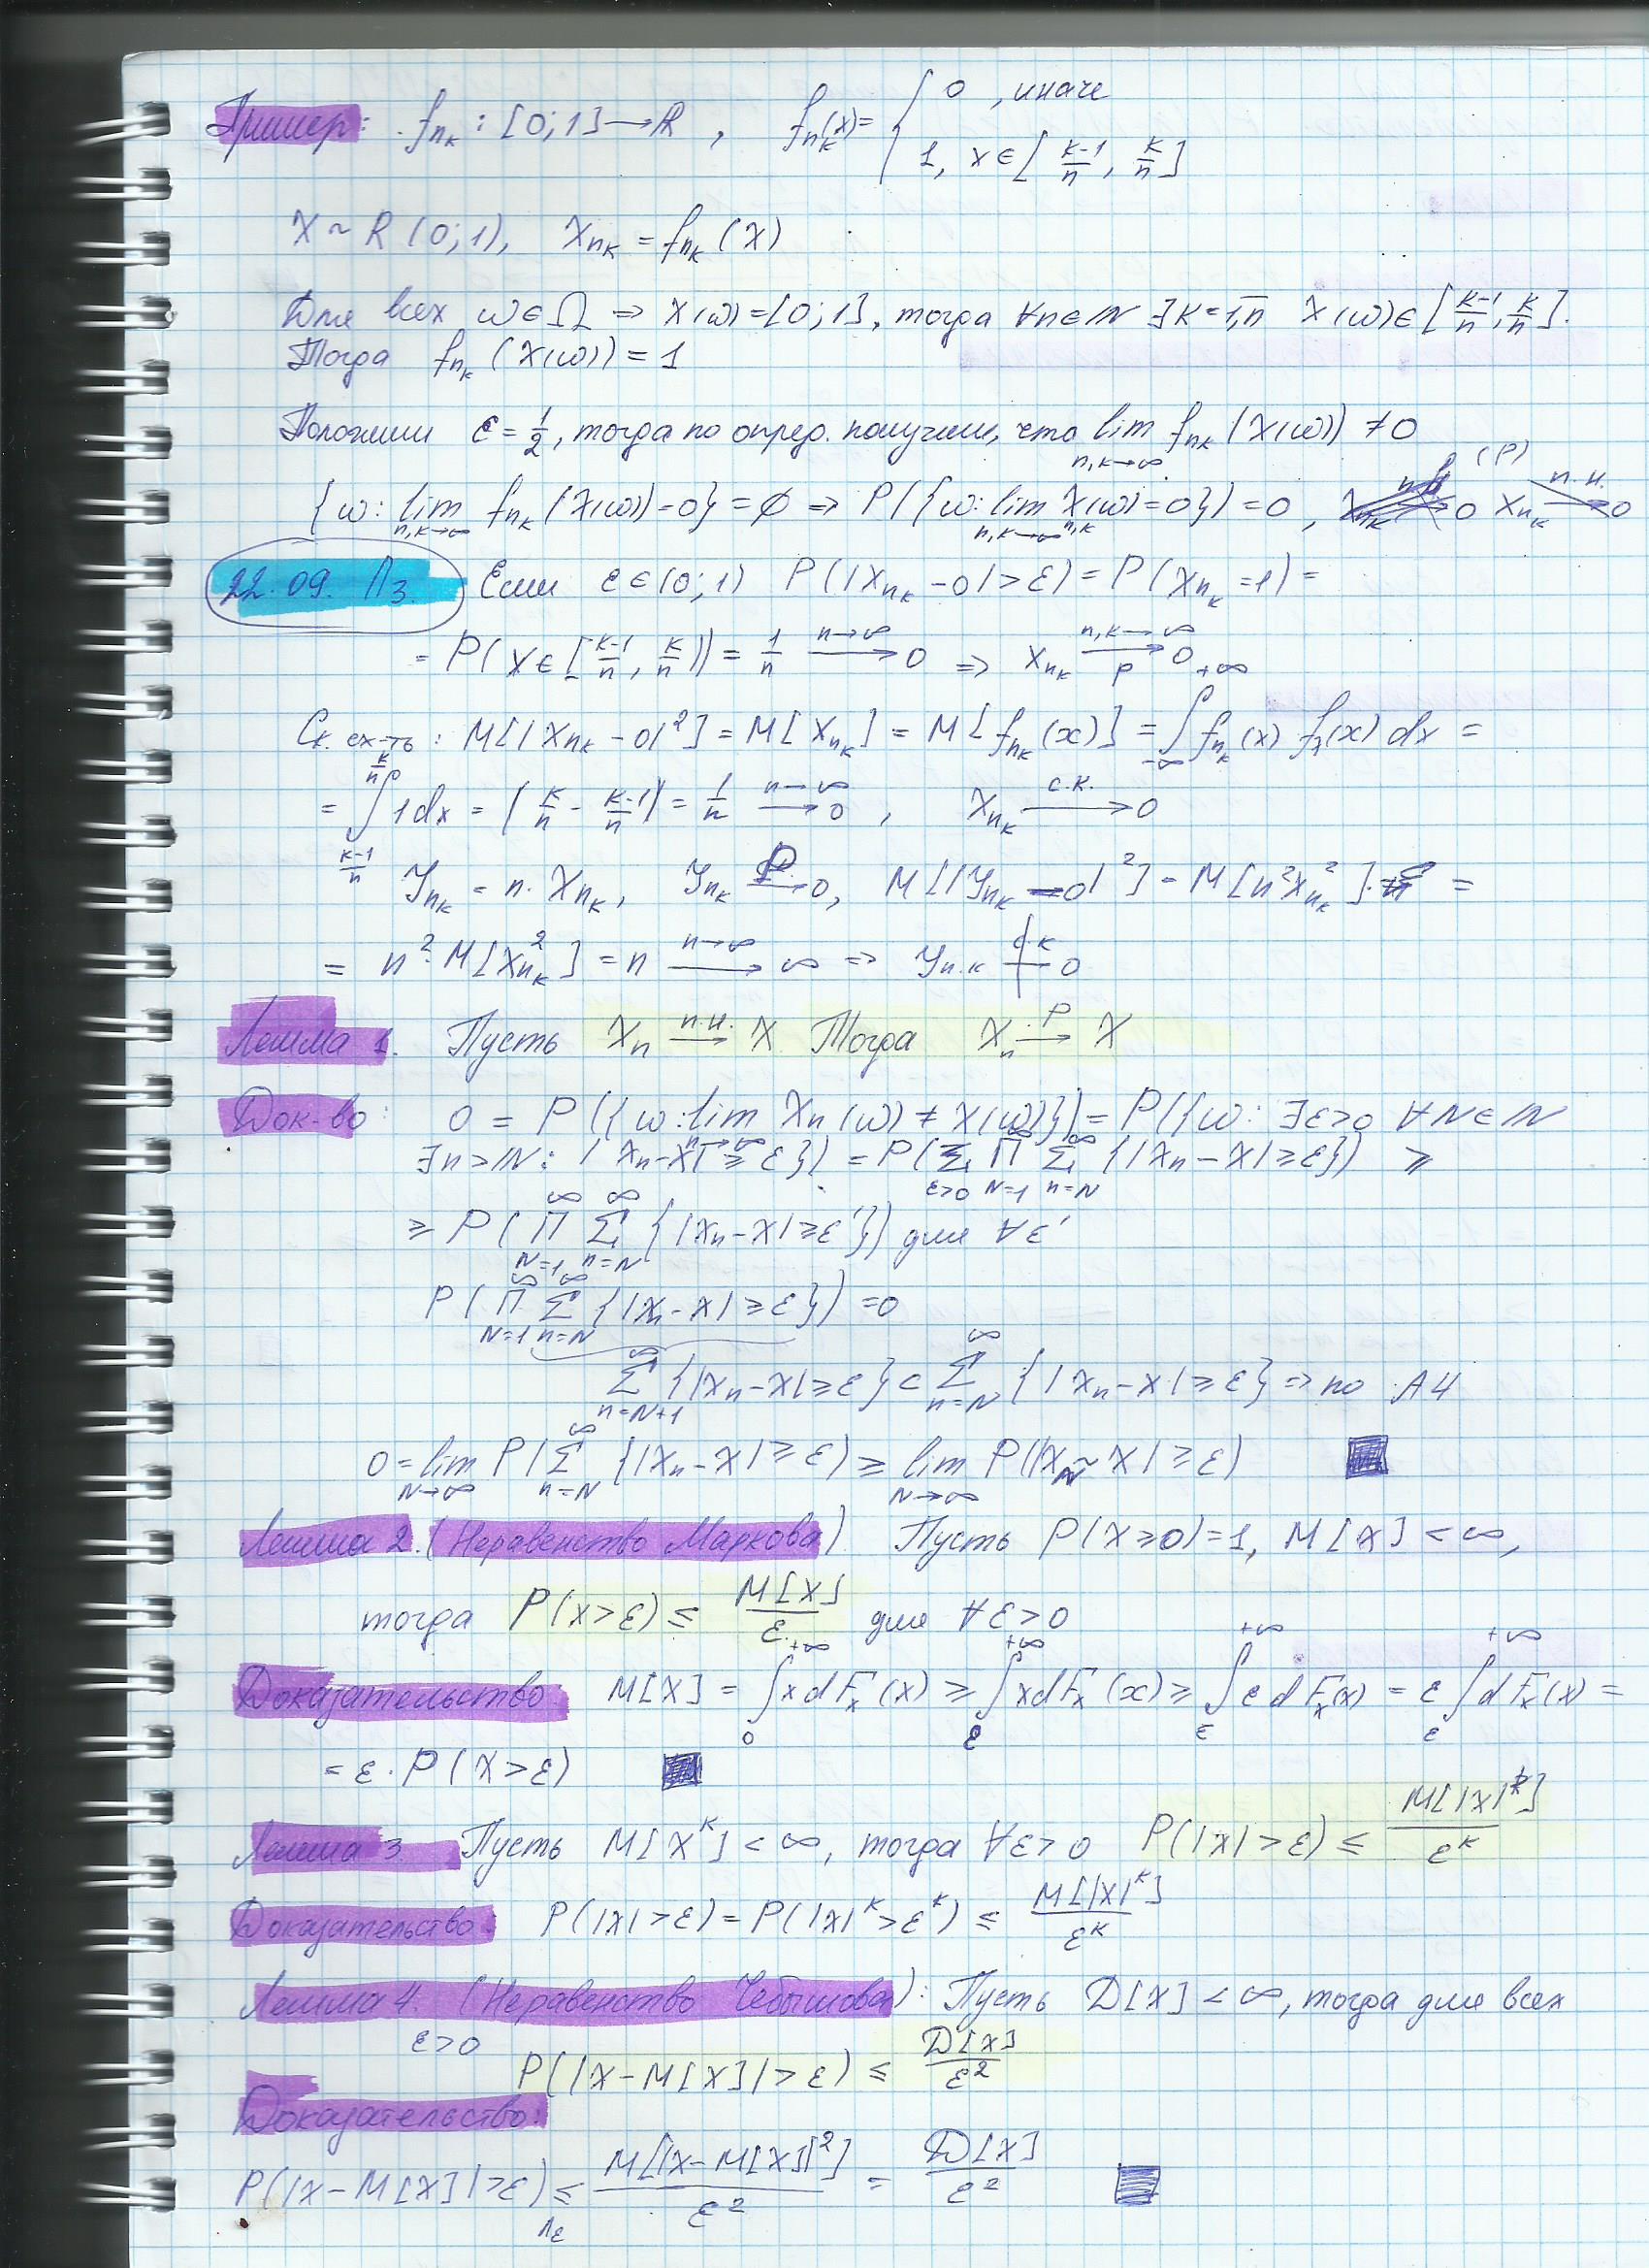 Пример: f_{n_k}: [0;1] → R, f_{n_k}(x) = { 0, иначе
1, x ∈ [ (k-1)/n, k/n ]
X ~ R(0;1), X_{n_k} = f_{n_k}(X)
Для всех ω∈Ω ⇒ X(ω)=[0;1], тогда ∀n∈N ∃k=1,n̄ X(ω)∈[ (k-1)/n, k/n ].
Тогда f_{n_k}(X(ω)) = 1
Положим ε = 1/2, тогда по опред. получим, что lim_{n,k→∞} f_{n_k}(X(ω)) ≠ 0
{ω: lim_{n,k→∞} f_{n_k}(X(ω))=0} = ∅ ⇒ P({ω: lim_{n,k→∞} X_{n,k}(ω)=0}) = 0, X_{n_k} п.н.↛ 0
22.09. Л3. Если ε∈(0;1) P(|X_{n_k} - 0| > ε) = P(X_{n_k} = 1) =
= P(X ∈ [ (k-1)/n, k/n ]) = 1/n →^{n→∞} 0 ⇒ X_{n_k} →^{n,k→∞}_{P} 0
Ск. сх-ть: M[|X_{n_k} - 0|²] = M[X_{n_k}] = M[f_{n_k}(x)] = ∫_{-∞}^{+∞} f_{n_k}(x) f_x(x) dx =
= ∫_{(k-1)/n}^{k/n} 1dx = (k/n - (k-1)/n) = 1/n →^{n→∞} 0, X_{n_k} →^{с.к.} 0
Y_{n_k} = n·X_{n_k}, Y_{n_k} →^{P} 0, M[|Y_{n_k} - 0|²] = M[n²X²_{n_k}] =
= n²·M[X²_{n_k}] = n →^{n→∞} ∞ ⇒ Y_{n.k} с.к↛ 0
Лемма 1. Пусть X_n →^{п.н.} X Тогда X_n →^{P} X
Док-во: 0 = P({ω: lim_{n→∞} X_n(ω) ≠ X(ω)}) = P({ω: ∃ε>0 ∀N∈N
∃n>N: |X_n - X| ≥ ε}) = P(Σ_{ε>0} Π_{N=1}^{∞} Σ_{n=N}^{∞} {|X_n - X| ≥ ε}) ≥
≥ P(Π_{N=1}^{∞} Σ_{n=N}^{∞} {|X_n - X| ≥ ε'}) для ∀ε'
P(Π_{N=1}^{∞} Σ_{n=N}^{∞} {|X_n - X| ≥ ε}) = 0
Σ_{n=N+1}^{∞} {|X_n - X| ≥ ε} ⊂ Σ_{n=N}^{∞} {|X_n - X| ≥ ε} ⇒ по А4
0 = lim_{N→∞} P(Σ_{n=N}^{∞} {|X_n - X| ≥ ε) ≥ lim_{N→∞} P(|X_N - X| ≥ ε)
Лемма 2. (Неравенство Маркова). Пусть P(X≥0)=1, M[X] < ∞,
тогда P(X>ε) ≤ M[X]/ε для ∀ε>0
Доказательство M[X] = ∫_0^{+∞} x dF_x(x) ≥ ∫_ε^{+∞} x dF_x(x) ≥ ∫_ε^{+∞} ε dF_x(x) = ε ∫_ε^{+∞} dF_x(x) =
= ε·P(X>ε)
Лемма 3 Пусть M[X^k] < ∞, тогда ∀ε>0 P(|X|>ε) ≤ M[|X|^k]/ε^k
Доказательство: P(|X|>ε) = P(|X|^k > ε^k) ≤ M[|X|^k]/ε^k
Лемма 4. (Неравенство Чебышова): Пусть D[X] < ∞, тогда для всех
ε>0 P(|X - M[X]| > ε) ≤ D[X]/ε²
Доказательство:
P(|X - M[X]| > ε) ≤ M[|X - M[X]|²]/ε² = D[X]/ε²